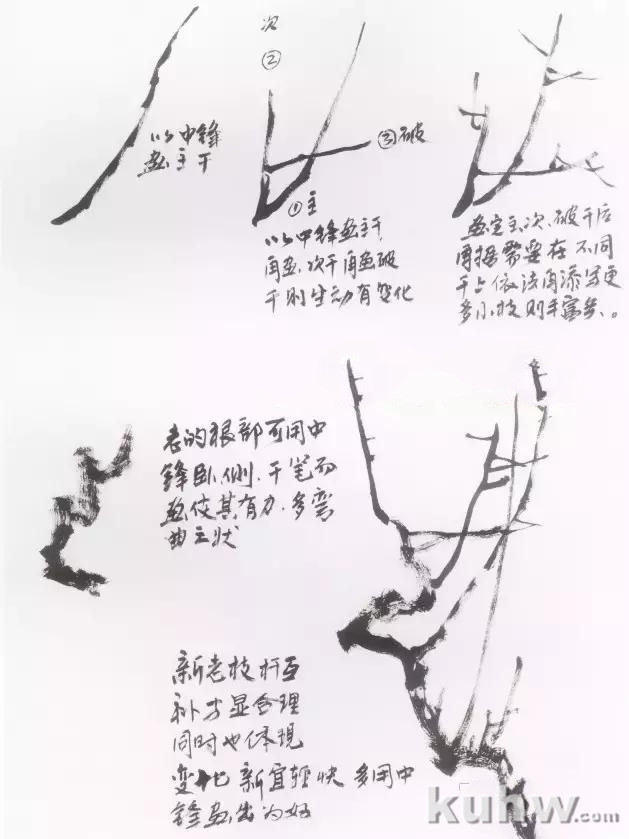 以中锋
画主干
次
②
③破
①主
以中锋画主干
再画、次干再画破
干则生动有变化
画定主次、破干后
再据需要在不同
干上依法再添写更
多小枝则丰富矣、。
老的根部可用中
锋卧、侧、干笔而
画使其有力、多弯
曲之状
新老枝杆互
补才显合理
同时也体现
变化 新宜轻快 多用中
锋画出为好
kuhw.com